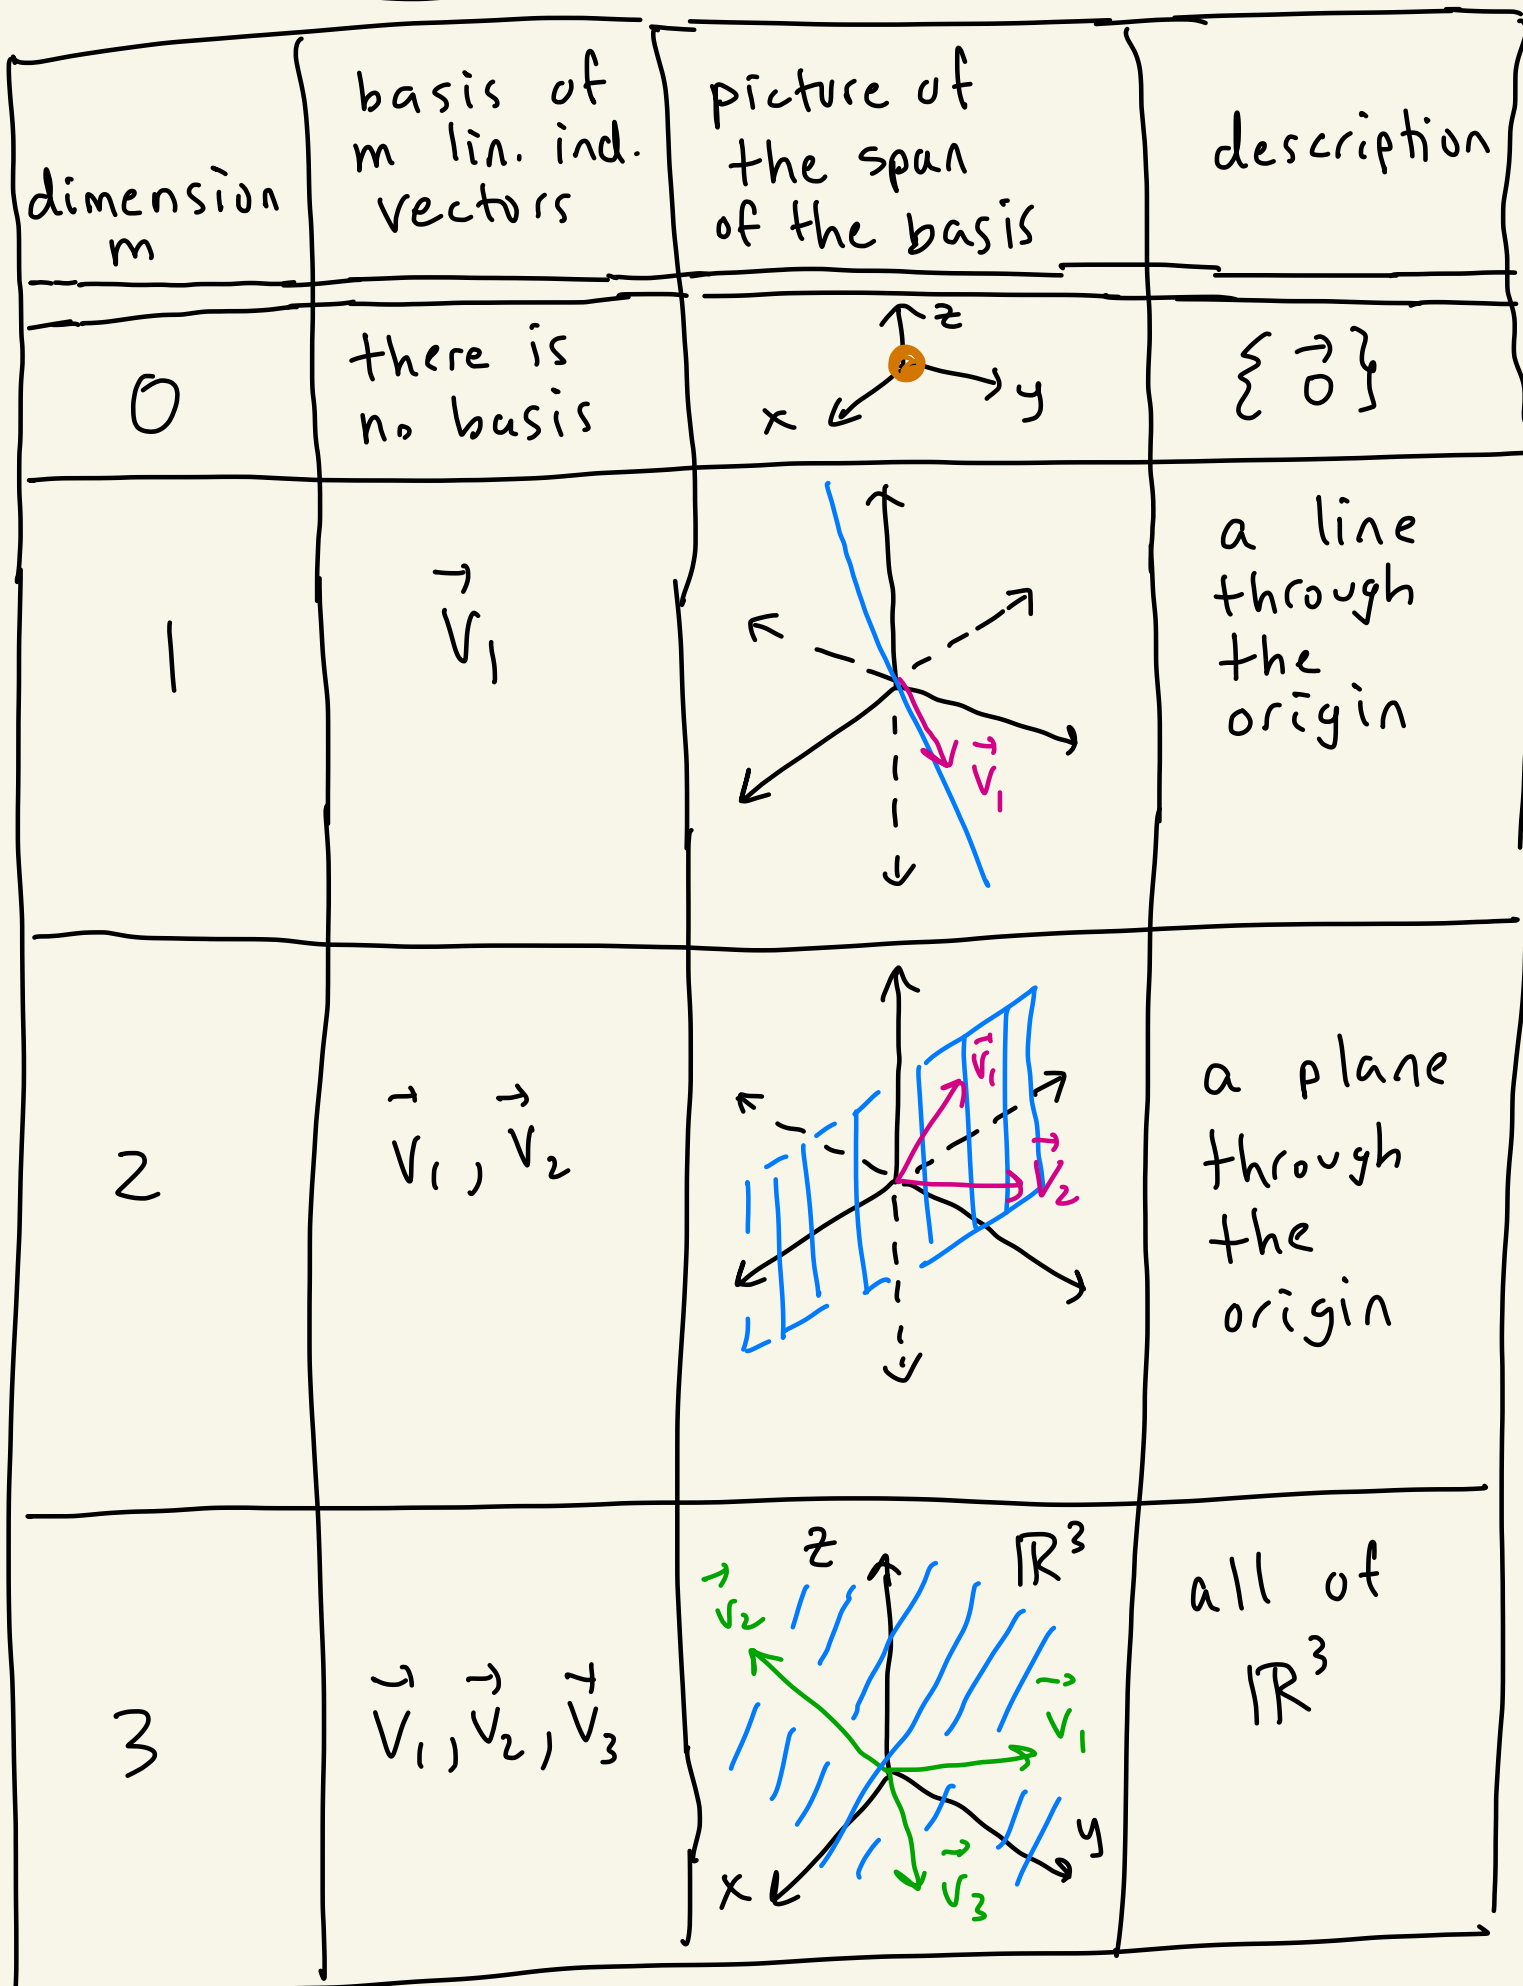 dimension
m
basis of
m lin. ind.
vectors
picture of
the span
of the basis
description
0
there is
no basis
z
y
x
{ 0⃗ }
1
v⃗₁
v⃗₁
a line
through
the
origin
2
v⃗₁, v⃗₂
v⃗₁
v⃗₂
a plane
through
the
origin
3
v⃗₁, v⃗₂, v⃗₃
z
ℝ³
v⃗₂
v⃗₁
y
x
v⃗₃
all of
ℝ³